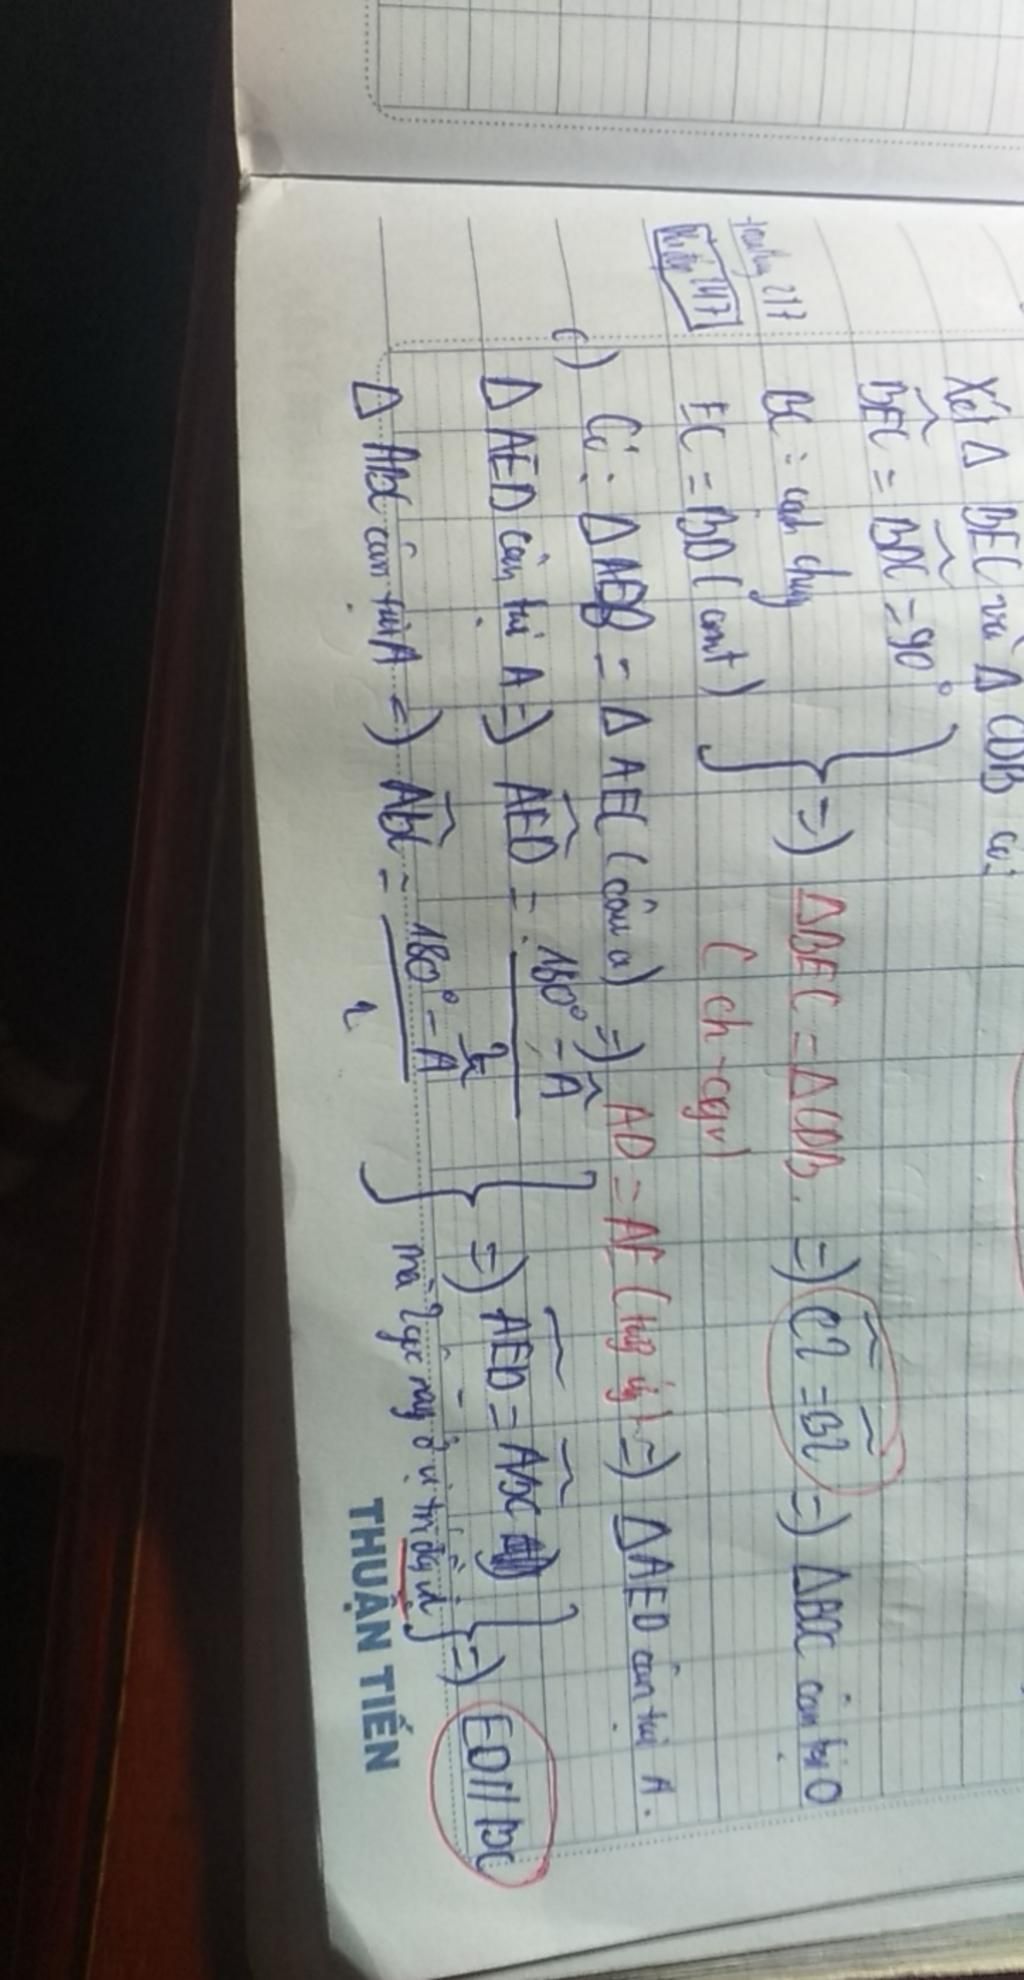 Xét Δ BEC và Δ CDB có:
BEC = BDC = 90°
BC: cạnh chung
EC = BD (cmt)
} => ΔBEC = ΔCDB. => C2 = B2 => ΔBOC cân tại O
( ch - cgv)
c) Có: Δ ADB = Δ AEC (câu a) => AD = AE (2 cạnh t/ứ) => ΔAED cân tại A.
Δ AED cân tại A => AED = 180° - A / 2
Δ ABC cân tại A => ABC = 180° - A / 2
} => AED = ABC
mà 2 góc này ở vị trí đồng vị } => ED // BC
THUẬN TIẾN